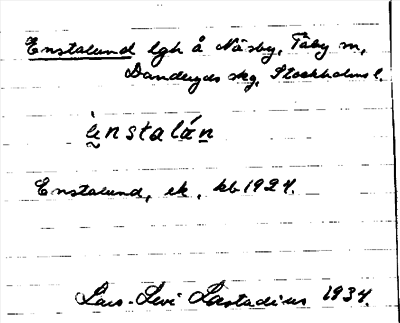 Enstalund lgh å Näsby, Täby sn,
Danderyds skg, Stockholms l.
ènstalán
Enstalund, ek, kb 1924.
Lars-Levi Læstadius 1934.